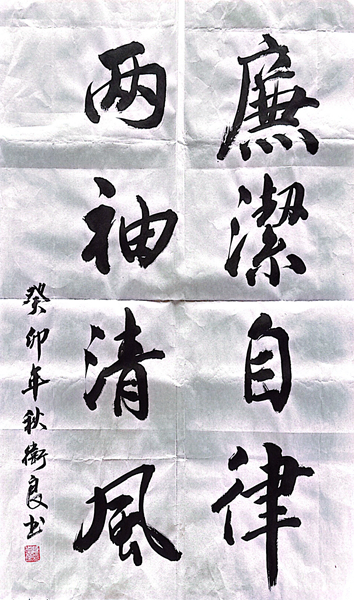 廉潔自律
两袖清風
癸卯年秋衛良书